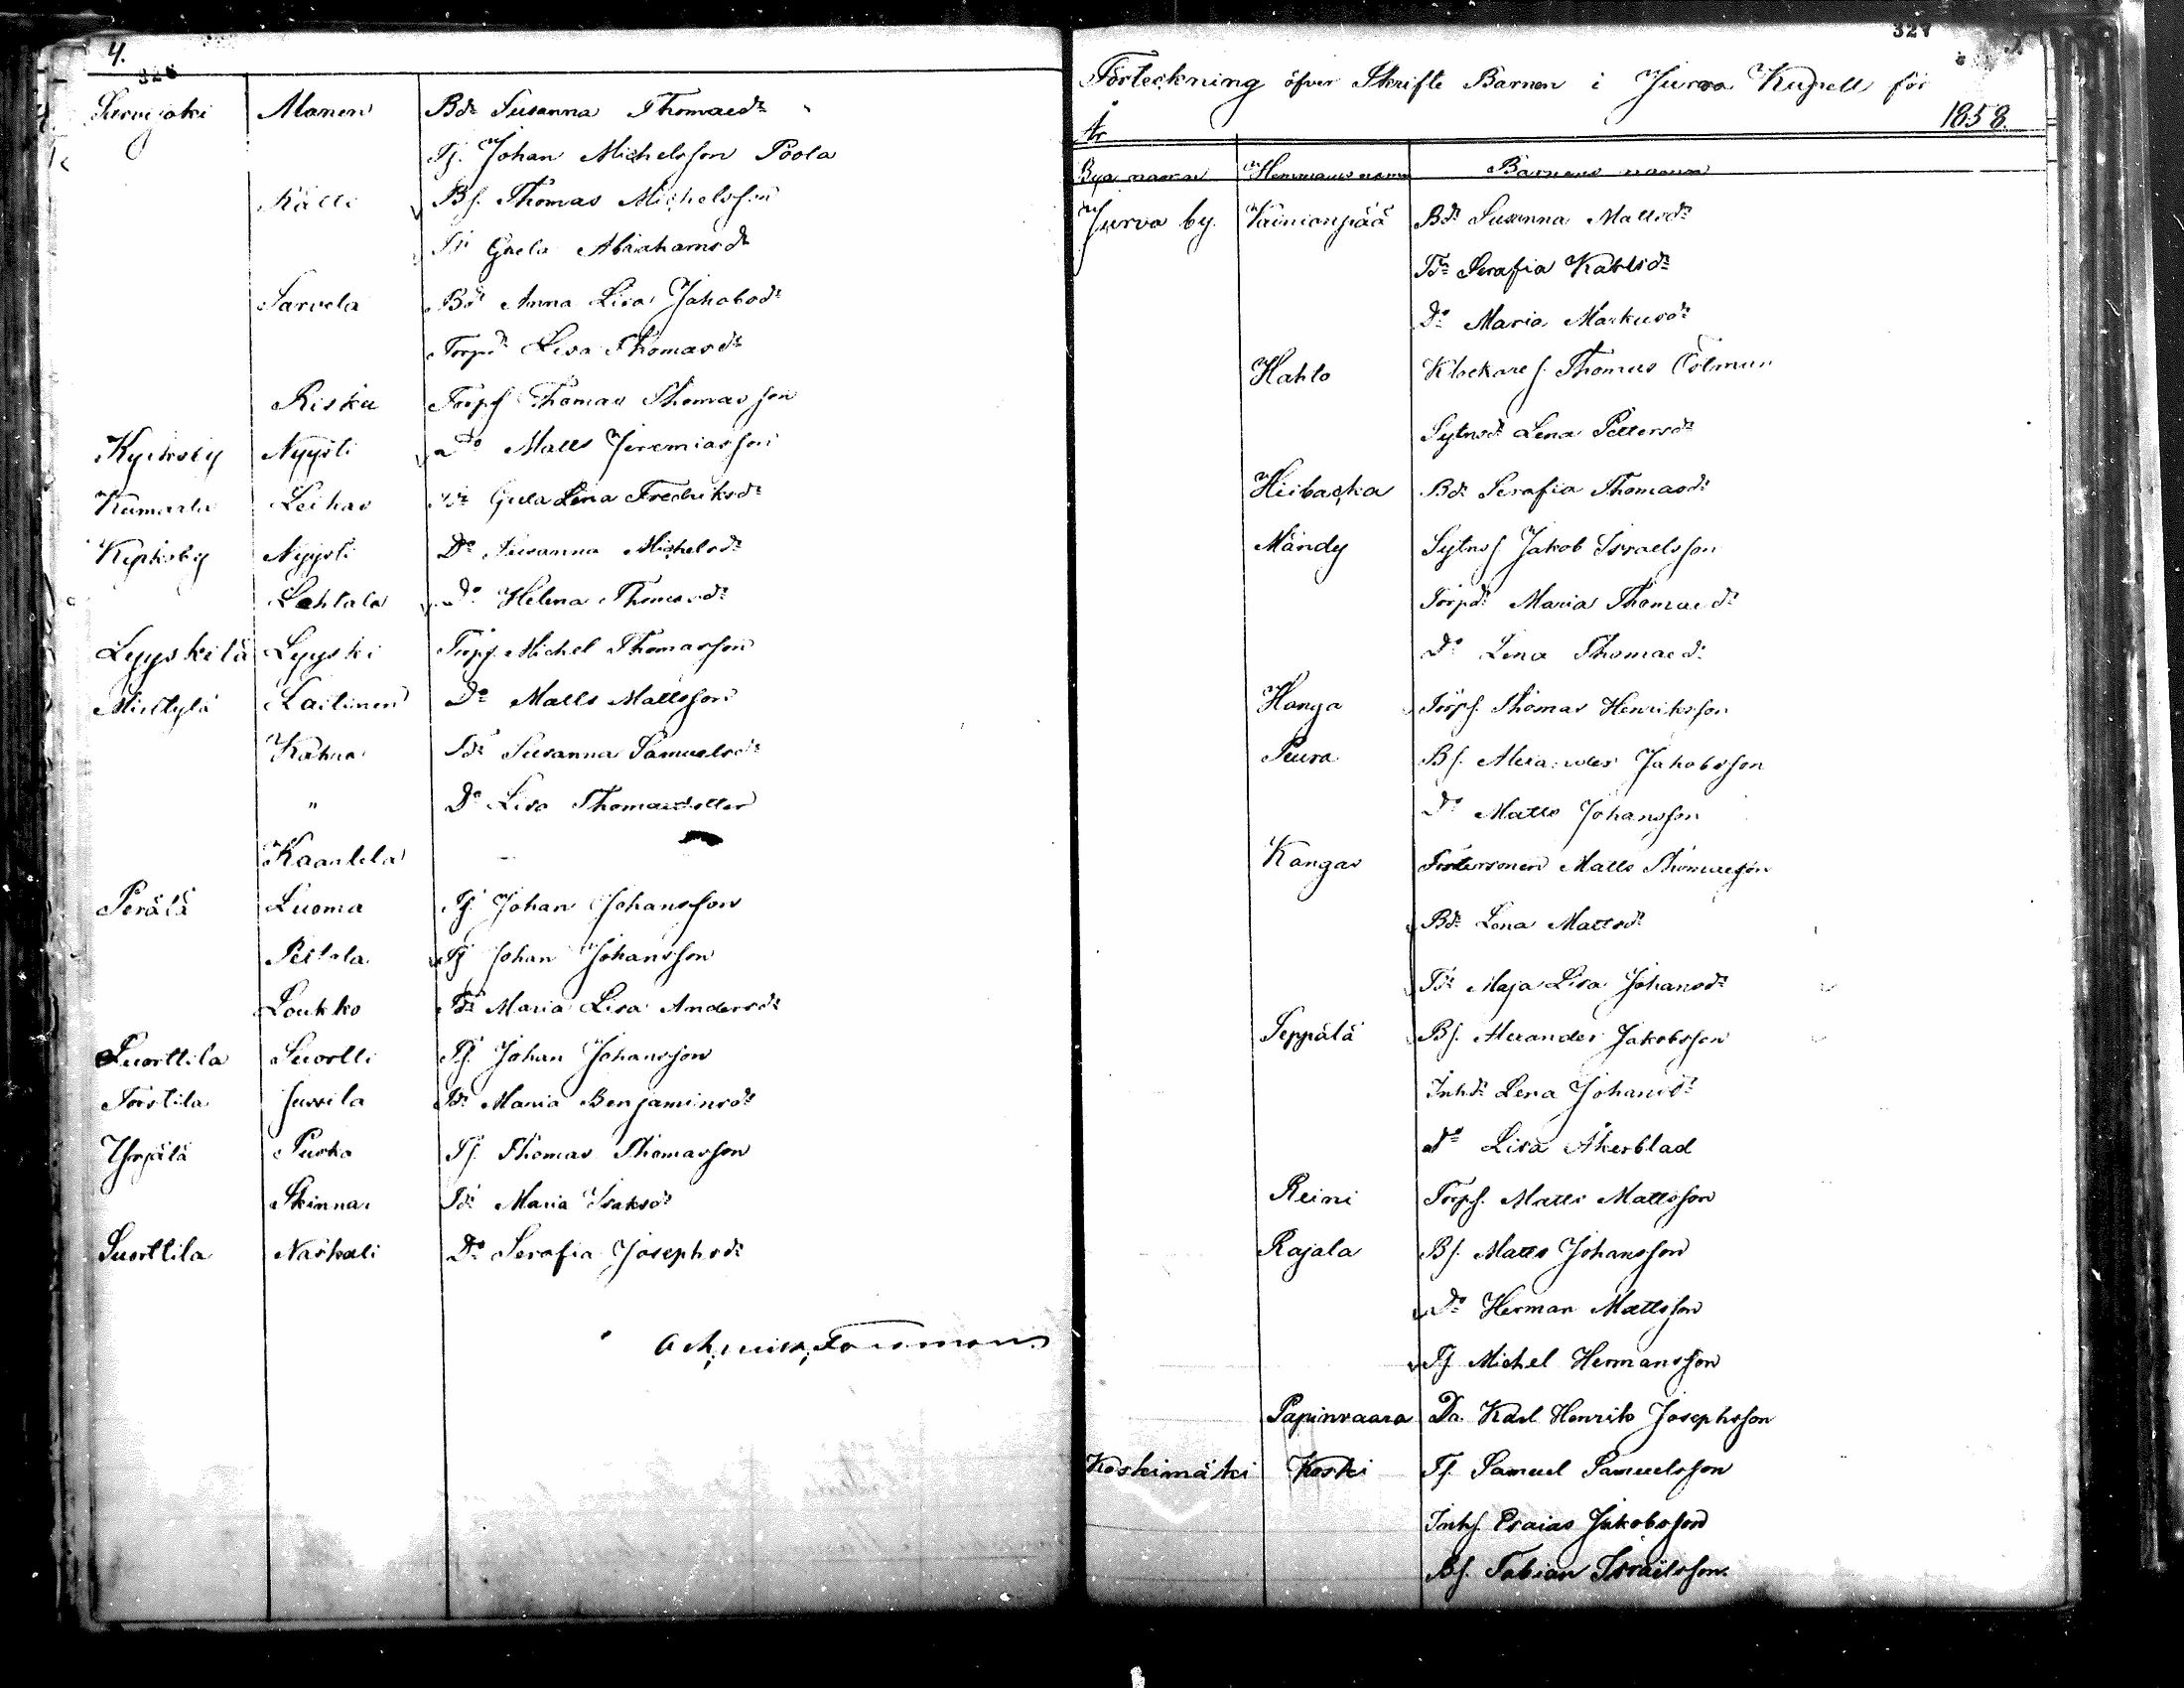 4.
326
Sarvijoki Alanen Bdr Susanna Thomaedr
Tj. Johan Michelsson Poola
Källi Bs. Thomas Michelsson
Tdr Greta Abrahamsdr
Sarvela Bdr Anna Lisa Jakobsdr
Torpdr Lisa Thomasdr
Risku Torps Thomas Thomasson
Kyrkoby Nyysti Do Matts Jeremiasson
Kumarla Leihas Bdr Greta Lena Fredriksdr
Kyrkoby Nyysti Do Susanna Michelsdr
Lehtala Do Helena Thomasdr
Lyyskilä Lyyski Torps. Michel Thomasson
Miettylä Laitinen Do Matts Mattsson
Kähnä Tdr Susanna Samuelsdr
" Do Lisa Thomaedotter
Kaantela
Perälä Luoma Tj. Johan Johansson
Peltola Tj Johan Johansson
Loukko Tdr Maria Lisa Andersdr
Suorttila Suortti Tj. Johan Johansson
Törstila Jussila Tdr Maria Benjaminsdr
Yrjälä Pusko Tj. Thomas Thomasson
Skinnar Tdr Maria Isaksdr
Suorttila Naskali Do Serafia Josephsdr
327
Förteckning öfver Skrifte Barnen i Jurva Kapell för
År 1858.
Bya namn Hemmans namn Barnens namn
Jurva by. Vainionpää Bdr Susanna Mattsdr
Tdr Serafia Karlsdr
Do Maria Markusdr
Hahto Klockares. Thomas Cölman
Sytnsdr Lena Pettersdr
Hiibacka Bdr Serafia Thomasdr
Mändy Sytns Jakob Israelsson
Torpdr Maria Thomaedr
Do Lena Thomaedr
Hanga Torps. Thomas Henriksson
Peura Bs. Alexander Jakobsson
Do Matts Johansson
Kangas Fostersonen Matts Thomaesson
Bdr Lena Mattsdr
Tdr Maja Lisa Johansdr
Seppälä Bs. Alexander Jakobsson
Inhdr Lena Johansdr
Do Lisa Åkerblad
Reini Torps. Matts Mattsson
Rajala Bs. Matts Johansson
Do Herman Mattsson
Tj Michel Hermansson
Papinvaara Do Karl Henrik Josephsson
Koskimäki Koski Tj. Samuel Samuelsson
Inhs. Esaias Jakobsson
Bs. Fabian Israelsson.